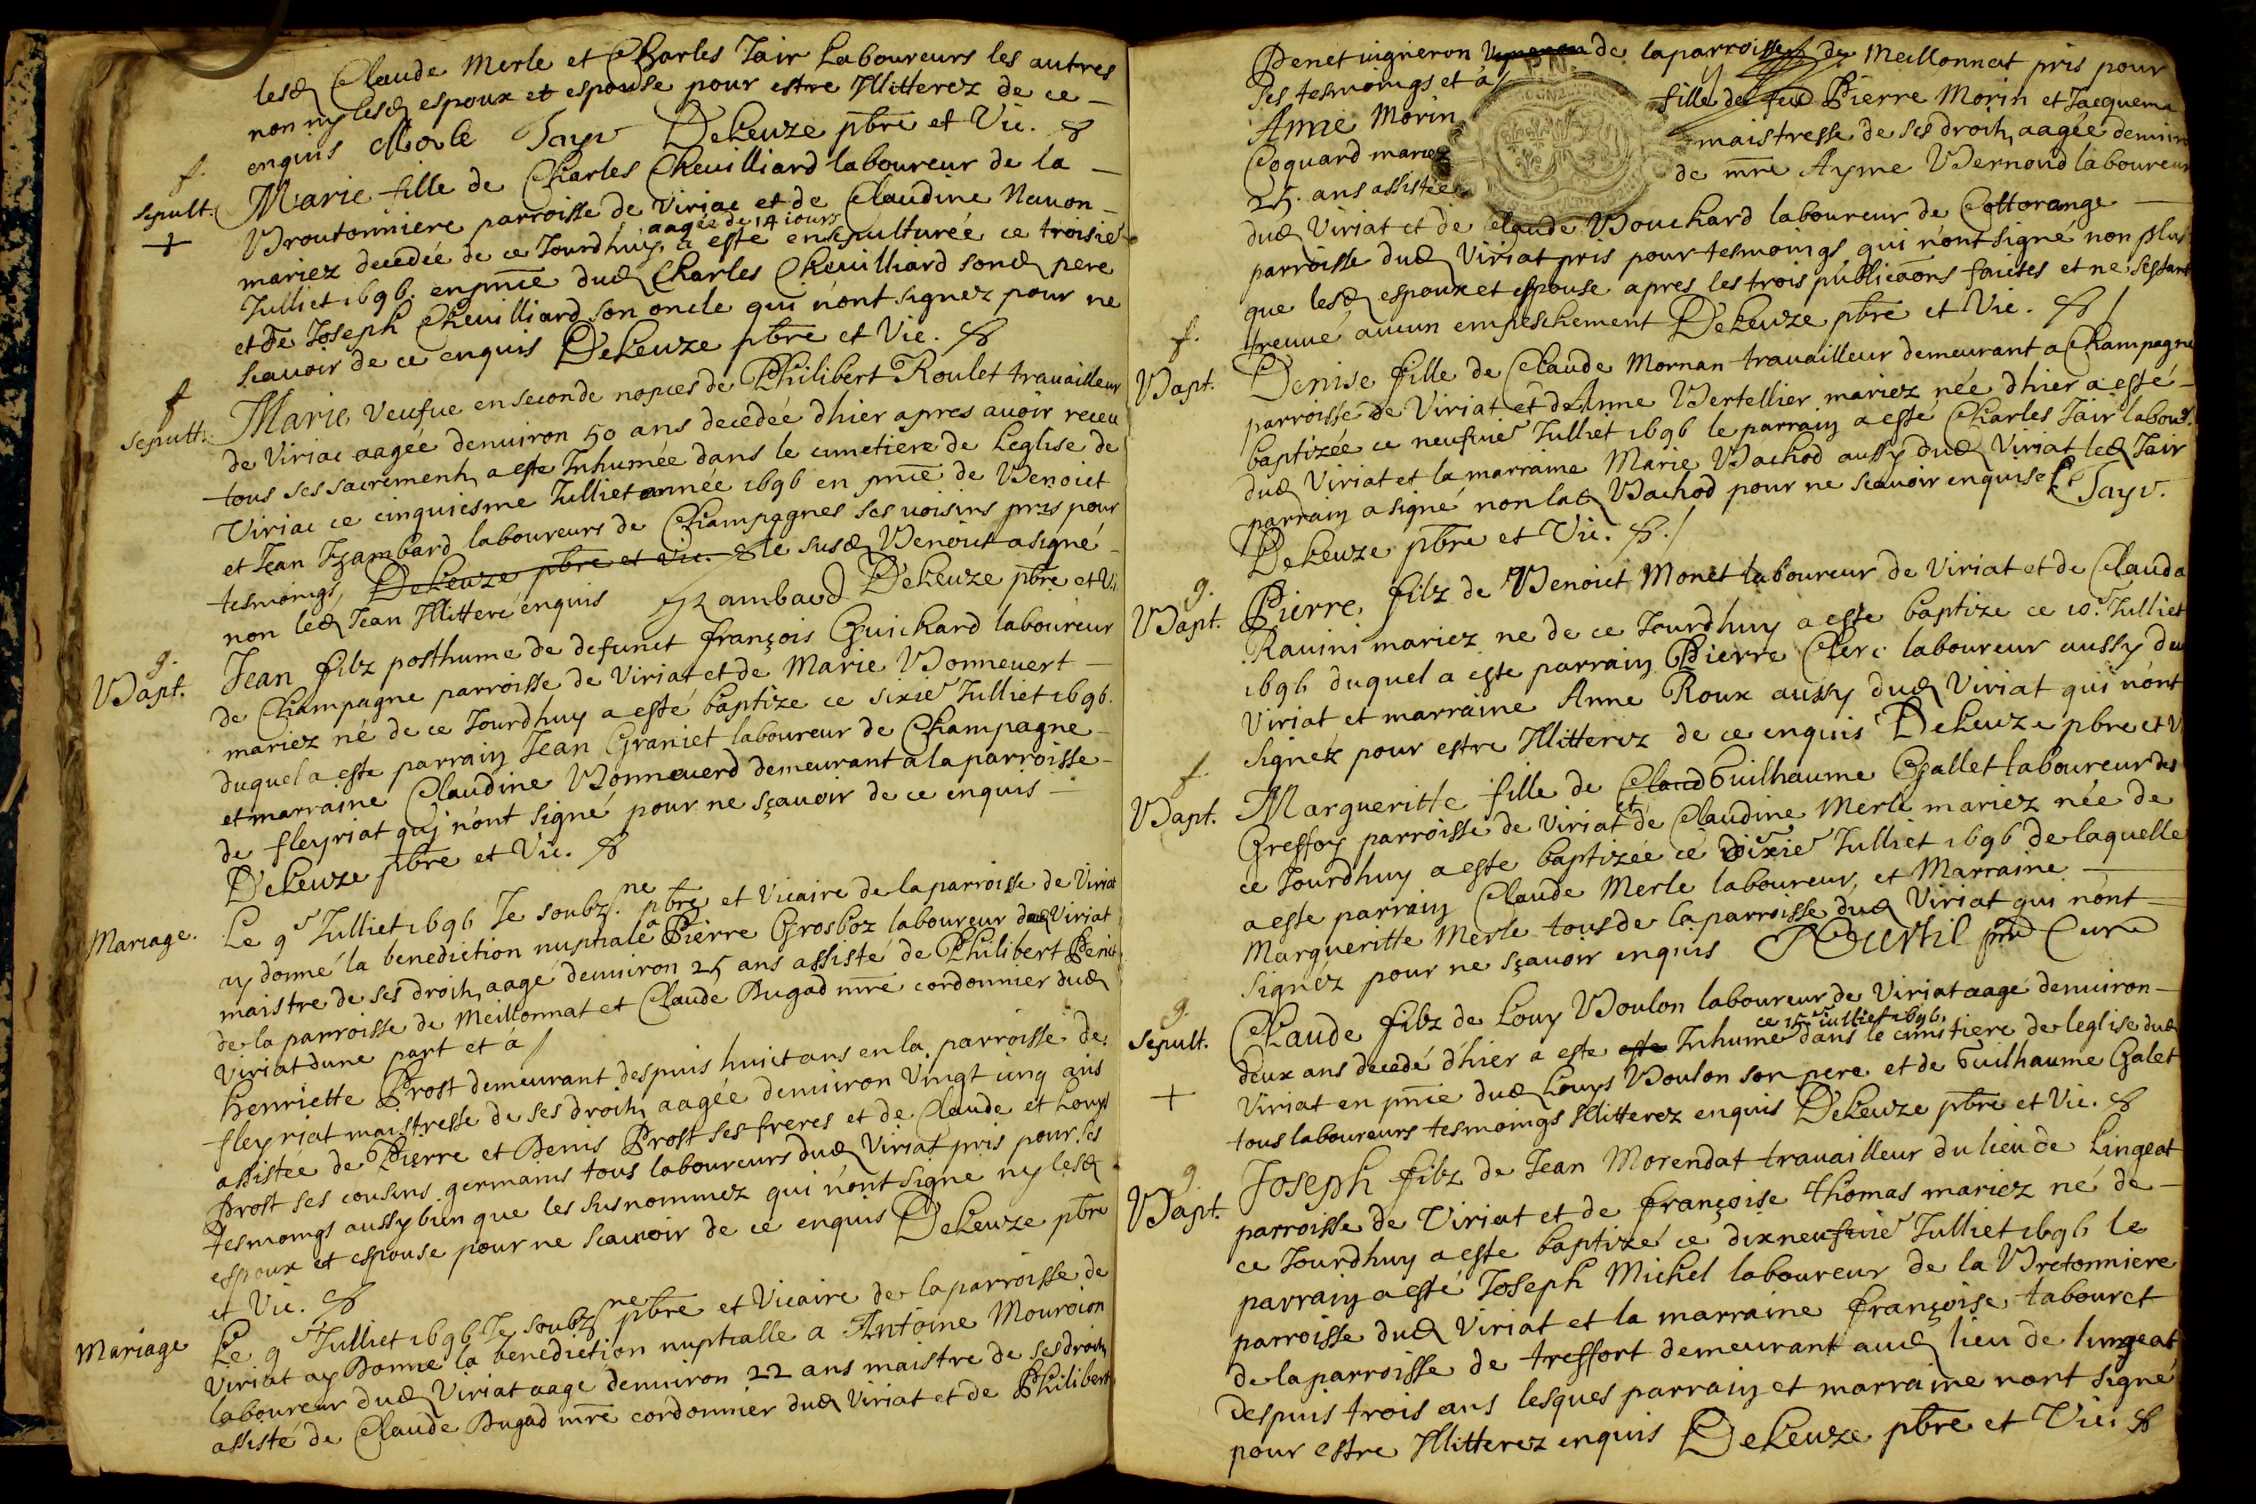 lesd Claude Merle et Charles Jair Laboureurs les autres
non ny lesd espoux et espouse pour estre Illitterez de ce
enquis Merle Jayr DeKeuze pbre et Vic.
f.
sepult.
Marie fille de Charles Cheuilliard laboureur de la
Broutonniere parroisse de Viriac et de Claudine Nauon
aagée de 14 iours
mariez decedée de ce Jourdhuy a esté ensepulturée ce troisie
Julliet 1696 en pnce dud Charles Cheuilliard sond pere
et de Joseph Cheuilliard son oncle qui n'ont signez pour ne
scauoir de ce enquis DeKeuze pbre et Vic.
f
sepult.
Marie, Veufue en seconde nopces de Philibert Roulet trauailleur
de Viriac aagée denuiron 50 ans decedée dhier apres auoir receu
tous ses sacrements a este Inhumée dans le cimetiere de Leglise de
Viriac ce cinquiesme Julliet année 1696 en pnce de Benoict
et Jean Izambard laboureurs de Champagnes ses uoisins pris pour
tesmoings, DeKeuze pbre et Vic. le susd Benoict a signé
non led Jean Illitteré enquis Izambard DeKeuze pbre et Vi
g.
Bapt.
Jean filz posthume de defunct françois Guichard laboureur
de Champagne parroisse de Viriat et de Marie Bonneuert
mariez né de ce Jourdhuy a esté baptize ce sixie Julliet 1696.
duquel a este parrain Jean Graniet laboureur de Champagne
et marraine Claudine Bonneuerd demeurant a la parroisse
de fleyriat quj n'ont signé pour ne sçauoir de ce enquis
DeKeuze pbre et Vic.
Mariage.
Le 9 Julliet 1696 Je soubz.ne pbre et Vicaire de la parroisse de Viriat
ay donné la benediction nuptiale a Pierre Grosboz laboureur dud Viriat
maistre de ses droits aagé denuiron 25 ans assisté de Philibert Penet
de la parroisse de Meillonnat et Claude Dugad mre cordonnier dud
Viriat dune part et à /
henriette Prost demeurant despuis huict ans en la parroisse de
fleyriat maistresse de ses droits aagée denuiron Vingt cinq ans
assistée de Pierre et Denis Prost ses freres et de Claude et Louys
Prost ses cousins germains tous laboureurs dud Viriat pris pour ses
tesmoings aussy bien que les susnommez qui n'ont signé ny lesd
espoux et espouse pour ne scauoir de ce enquis DeKeuze pbre
et Vic.
Mariage
Le 9 Julliet 1696 Je soubz ne pbre et Vicaire de la parroisse de
Viriat ay Donne la benediction nuptialle a Antoine Mouroion
laboureur dud Viriat aagé denuiron 22 ans maistre de ses droits
assisté de Claude Dugad mre cordonnier dud Viriat et de Philibert
Penet uigneron de la parroisse de Meillonnat pris pour
ses tesmoings et à
Anne Morin fille de feu Pierre Morin et Jacquema
Coquard mariez maistresse de ses droits aagée denuiro
25. ans assistée de mre Ayme Bernoud laboureur
dud Viriat et de Claude Bouchard laboureur de Cottorange
parroisse dud Viriat pris pour tesmoings qui n'ont signé non plus
que lesd espoux et espouse apres les trois publicaons faictes et ne sestant
treuué aucun empeschement DeKeuze pbre et Vic. /
f.
Bapt.
Denise fille de Claude Mornan trauailleur demeurant a Champagne
parroisse de Viriat et de Anne Bertellier mariez née dhier a esté
baptizée ce neufuie Julliet 1696 le parrain a esté Charles Jair labour.
dud Viriat et la marraine Marie Bachod aussy dud Viriat led Jair
parrain a signé non lad Bachod pour ne scauoir enquise C Jayr.
DeKeuze pbre et Vic. /
g.
Bapt.
Pierre, filz de Benoict Monet laboureur de Viriat et de Clauda
Rauini mariez ne de ce Jourdhuy a este baptize ce 10. Julliet
1696 duquel a este parrain Pierre Clerc laboureur aussy du
Viriat et marraine Anne Roux aussy dud Viriat qui n'ont
signéz pour estre Illitterez de ce enquis DeKeuze pbre et V
f.
Bapt.
Margueritte fille de Claud Guilhaume Gallet laboureur des
Greffoy parroisse de Viriat et de Claudine Merle mariez née de
ce Jourdhuy a este baptizée ce dixie Julliet 1696 de laquelle
a este parrain Claude Merle laboureur, et Marraine
Margueritte Merle tous de la parroisse dud Viriat qui n'ont
signéz pour ne sçauoir enquis Curé
g.
Sepult.
Claude filz de Louy Boulon laboureur de Viriat aage denuiron
ce 15 iulliet 1696
deux ans decedé d'hier a este este Inhume dans le cimetiere de leglise dud
Viriat en pnce dud Louys Boulon son pere et de Guilhaume Galet
tous laboureurs tesmoings Illitterez enquis DeKeuze pbre et Vic.
g.
Bapt.
Joseph filz de Jean Morendat trauailleur du lieu de Lingeat
parroisse de Viriat et de françoise thomas mariez né de
ce Jourdhuy a este baptizé ce dixneufuie Julliet 1696 le
parrain a esté Joseph Michel laboureur de la Bretonniere
parroisse dud Viriat et la marraine françoise, tabouret
de la parroisse de treffort demeurant aud lieu de lingeat
despuis trois ans lesques parrain et marraine n'ont signé
pour estre Illitterez enquis DeKeuze pbre et Vic.